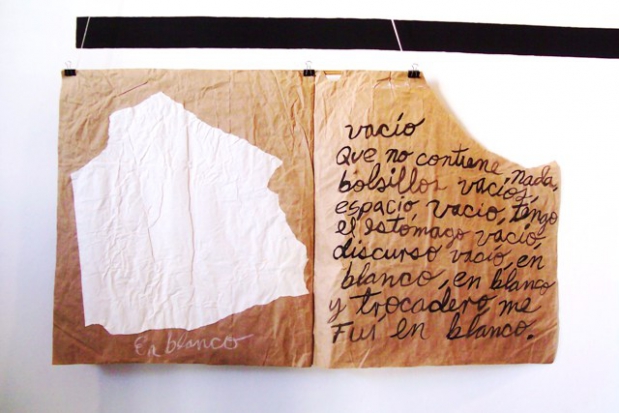 En blanco
vacío
Que no contiene nada,
bolsillos vacíos,
espacio vacio, tengo
el estómago vacío,
discurso vacío, en
blanco, en blanco
y trocadero me
Fui en blanco.